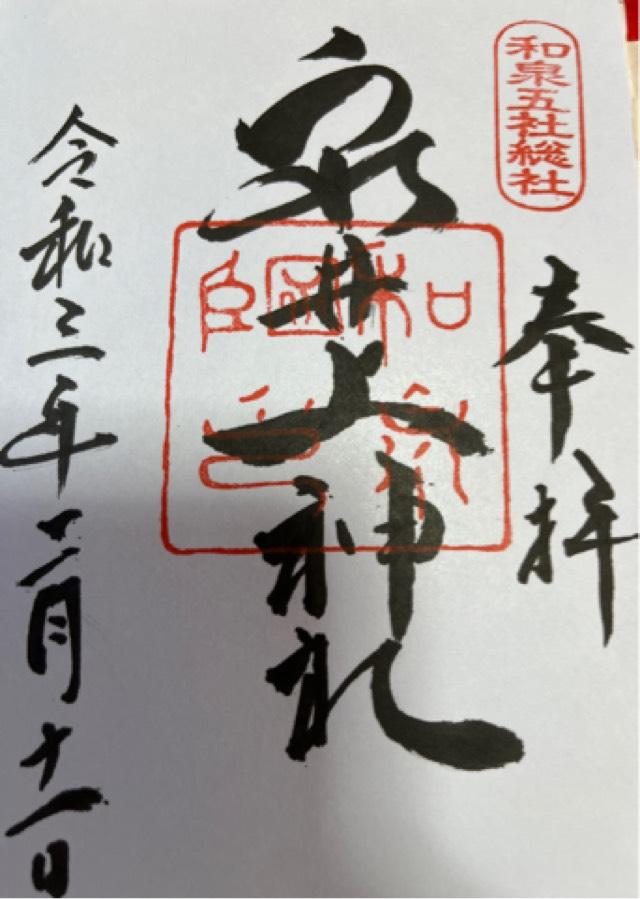 和泉五社総社
奉拝
泉井上神社
令和三年二月十一日